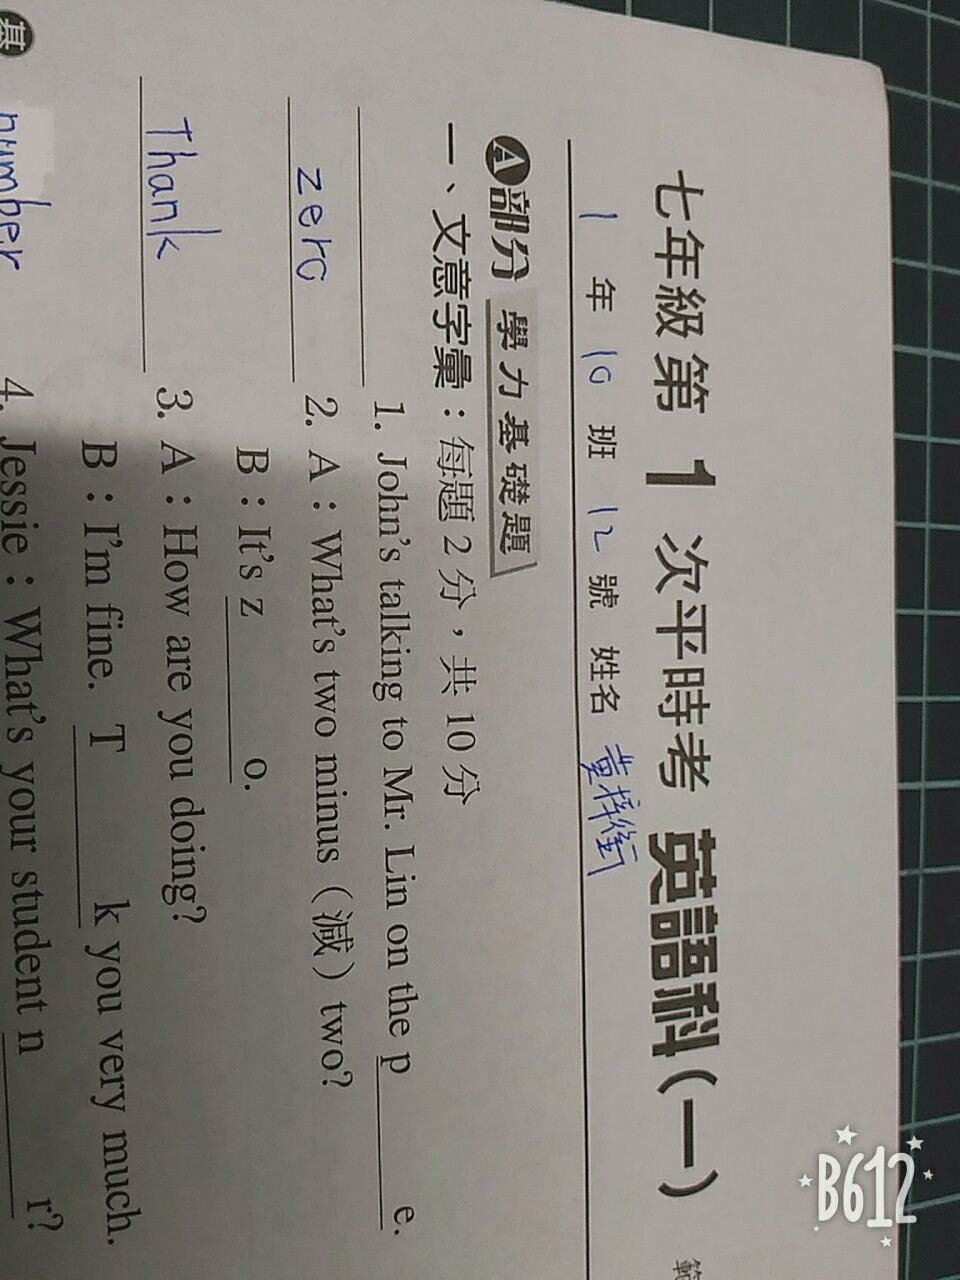 七年級 第 1 次平時考 英語科(一) 範
1 年 10 班 12 號 姓名 黃梓銜
A部分 學力基礎題
一、文意字彙：每題2分，共10分
1. John's talking to Mr. Lin on the p e.
zero 2. A：What's two minus（減）two?
B：It's z o.
Thank 3. A：How are you doing?
B：I'm fine. T k you very much.
number 4. Jessie：What's your student n r?
基
B612